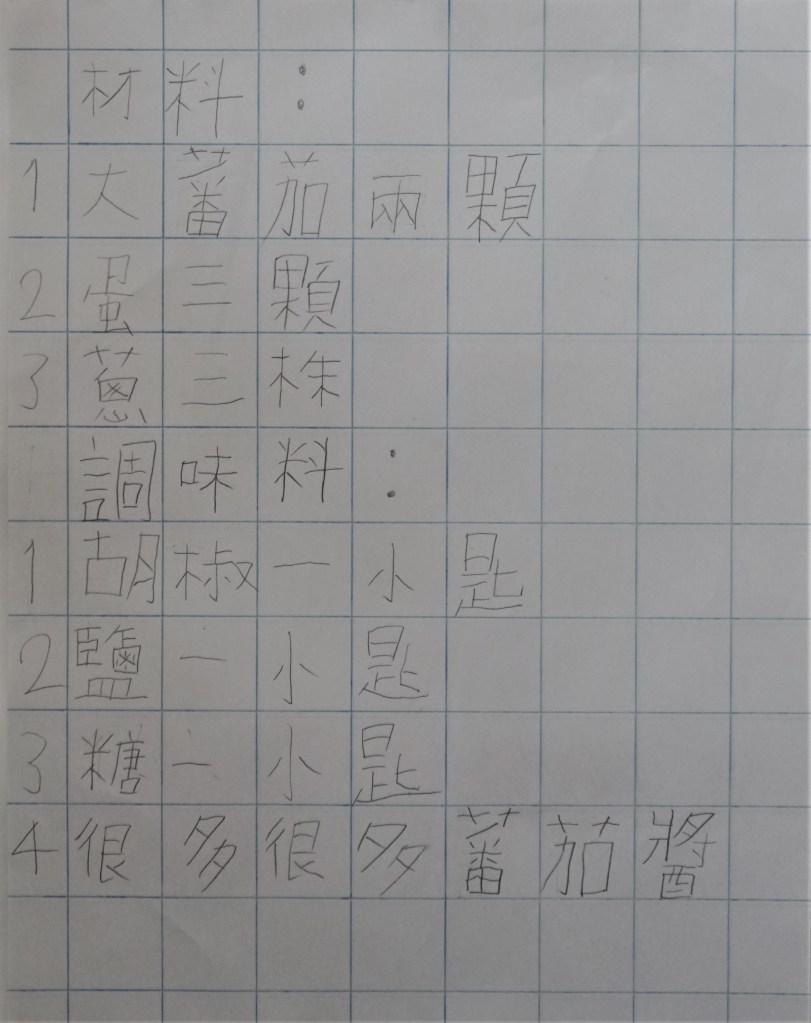 材料：
1大蕃茄兩顆
2蛋三顆
3蔥三株
調味料：
1胡椒一小匙
2鹽一小匙
3糖一小匙
4很多很多蕃茄醬